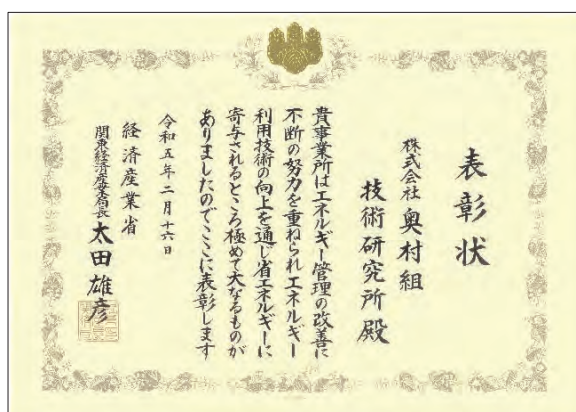 表彰状
株式会社 奥村組
技術研究所 殿
貴事業所はエネルギー管理の改善に
不断の努力を重ねられエネルギー
利用技術の向上を通じ省エネルギーに
寄与されるところ極めて大なるものが
ありましたのでここに表彰します
令和五年二月十六日
経済産業省
関東経済産業局長 太田雄彦